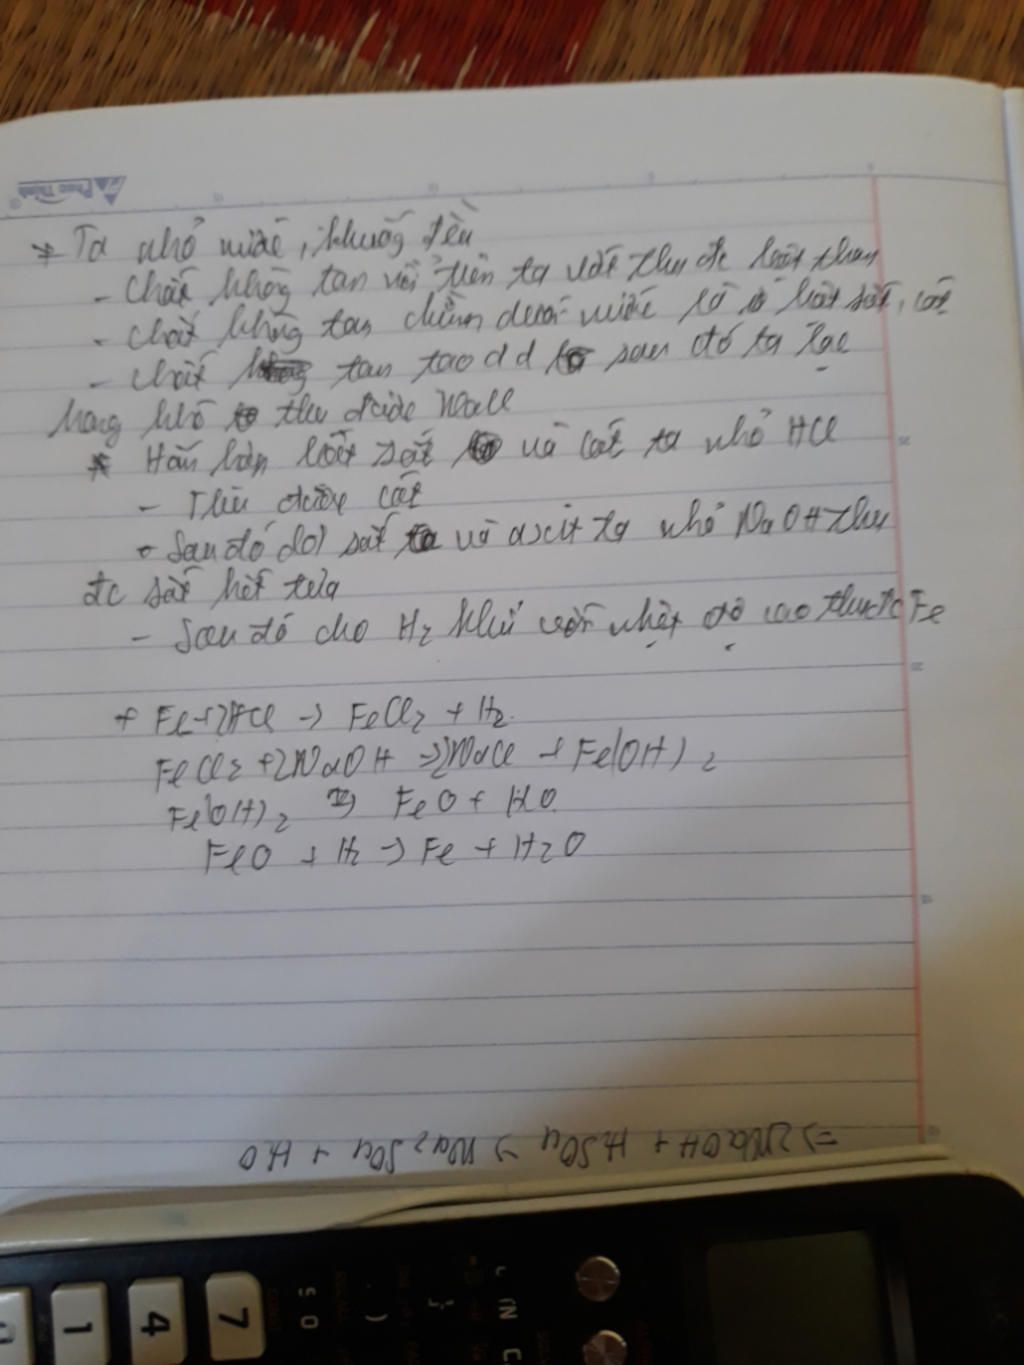 * Ta nhỏ nước, khuấy đều
- Chất không tan nổi trên ta vớt thu đc bột than
- Chất không tan chìm dưới nước là bột sắt, cát
- Chất tan tạo dd sau đó ta lọc
thu được NaCl
* Hỗn hợp bột sắt và cát ta nhỏ HCl
- Thu được cát
- Sau đó sắt và axit ta nhỏ NaOH thu
đc sắt kết tủa
- Sau đó cho H2 khử với nhiệt độ cao thu đc Fe
+ Fe+2HCl -> FeCl2 + H2
FeCl2 +2NaOH ->2NaCl + Fe(OH)2
Fe(OH)2 FeO + HO
FeO + H2 -> Fe + H2O
=> 2NaOH + H2SO4 -> Na2SO4 + H2O
Phan Thành
7
4
1